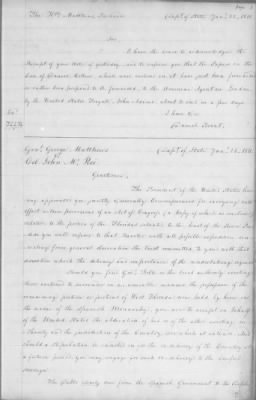 The Hon. Matthew
Dept. of State, Jany. 25, 1811.
Sir,
I have the honor to acknowledge the
Receipt of your Note of yesterday, and to inform you that the Papers in the
Case of
or rather been prepared to be forwarded, to the American Agent in London
by the United States Frigate, John Adams, about to sail in a few days.
I have &c.
Genl. George Matthews
Col. John McKee
Dept. of State, Jany. 26, 1811.
Gentlemen,
The President of the United States having
appointed you jointly & severally Commissioners for carrying into
effect certain provisions of an Act of Congress (a Copy of which is enclosed)
relative to the portion of the Floridas situated to the East of the River Per-
dido you will repair to that Quarter with all possible expedition, con-
cealing from general observation the trust committed to you with that
discretion which the delicacy and importance of the undertaking require.
Should you find Govr. Folk or the local authority existing
there inclined to surrender in an amicable manner the possession of the
remaining portion or portions of West Florida now held by him in
the name of the Spanish Monarchy, you are to accept in behalf
of the United States the abdication of his or of the other existing au-
thority and the jurisdiction of the Country over which it extends. And
should a stipulation be insisted on for the re-delivery of the Country at
a future period, you may engage for such re-delivery to the lawful
sovereign.
The debts clearly due from the Spanish Government to the People